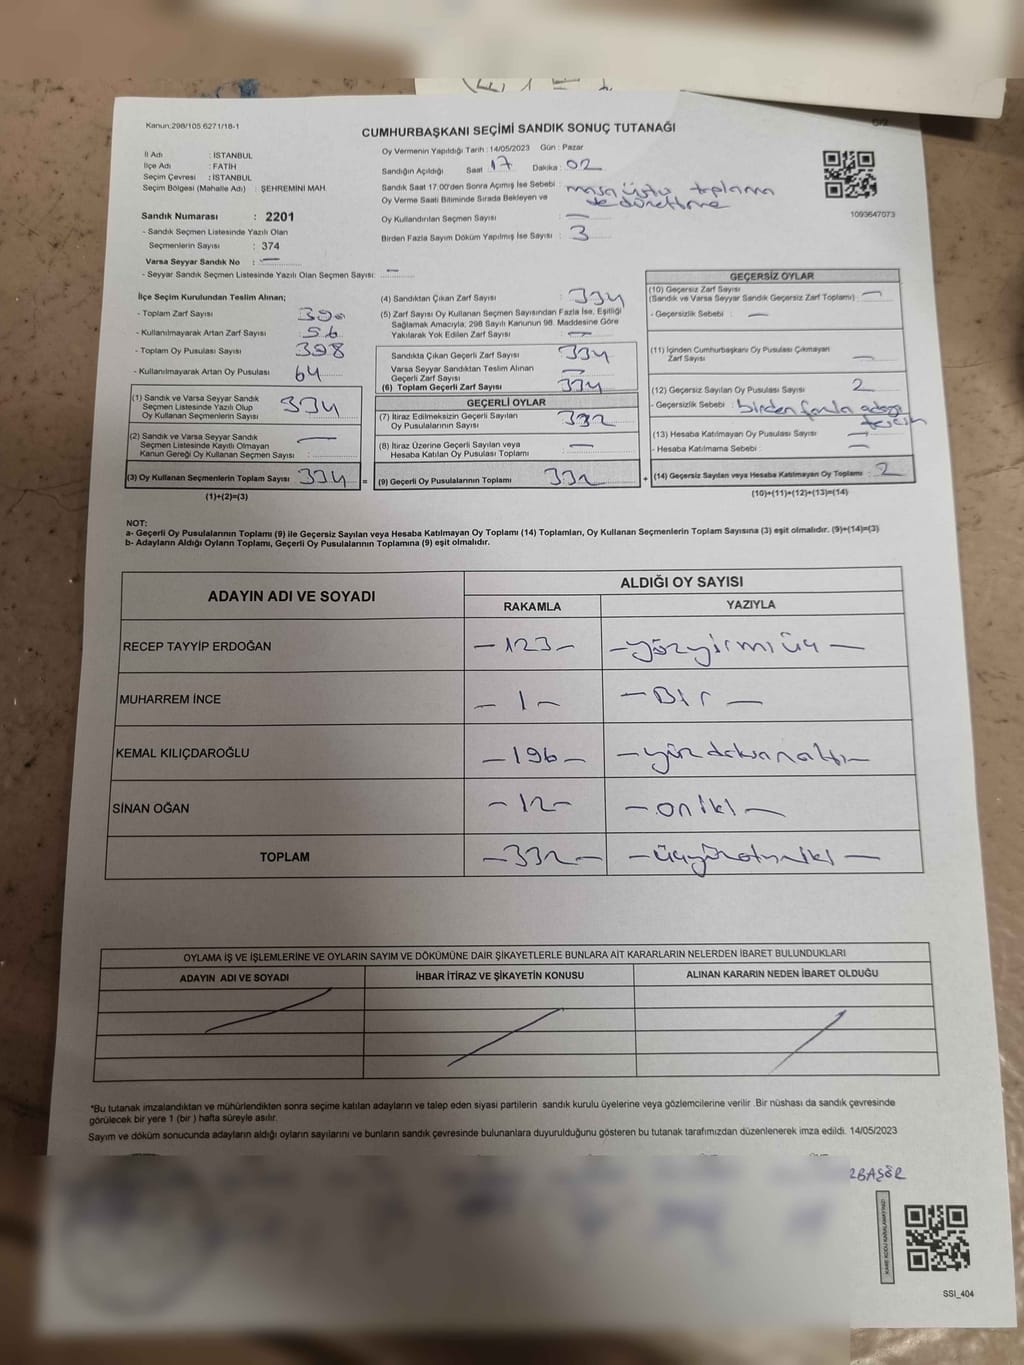 Kanun:298/105 6271/18-1
CUMHURBAŞKANI SEÇİMİ SANDIK SONUÇ TUTANAĞI
İl Adı : İSTANBUL
İlçe Adı : FATİH
Seçim Çevresi : İSTANBUL
Seçim Bölgesi (Mahalle Adı) : ŞEHREMİNİ MAH.
Sandık Numarası : 2201
- Sandık Seçmen Listesinde Yazılı Olan
Seçmenlerin Sayısı : 374
Varsa Seyyar Sandık No : —
- Seyyar Sandık Seçmen Listesinde Yazılı Olan Seçmen Sayısı: —
Oy Vermenin Yapıldığı Tarih : 14/05/2023 Gün : Pazar
Sandığın Açıldığı Saat 17 Dakika : 02
Sandık Saat 17.00'den Sonra Açımış İse Sebebi : masa üstü toplama
Oy Verme Saati Bitiminde Sırada Bekleyen ve ve düzeltme
Oy Kullandırılan Seçmen Sayısı : —
Birden Fazla Sayım Döküm Yapılmış İse Sayısı : 3
1093647073
İlçe Seçim Kurulundan Teslim Alınan;
- Toplam Zarf Sayısı : 390
- Kullanılmayarak Artan Zarf Sayısı : 56
- Toplam Oy Pusulası Sayısı : 398
- Kullanılmayarak Artan Oy Pusulası : 64
(1) Sandık ve Varsa Seyyar Sandık
Seçmen Listesinde Yazılı Olup
Oy Kullanan Seçmenlerin Sayısı : 334
(2) Sandık ve Varsa Seyyar Sandık
Seçmen Listesinde Kayıtlı Olmayan
Kanun Gereği Oy Kullanan Seçmen Sayısı : —
(3) Oy Kullanan Seçmenlerin Toplam Sayısı : 334
(1)+(2)=(3)
=
(4) Sandıktan Çıkan Zarf Sayısı : 334
(5) Zarf Sayısı Oy Kullanan Seçmen Sayısından Fazla İse, Eşitliği
Sağlamak Amacıyla; 298 Sayılı Kanunun 98. Maddesine Göre
Yakılarak Yok Edilen Zarf Sayısı : —
Sandıkta Çıkan Geçerli Zarf Sayısı : 334
Varsa Seyyar Sandıktan Teslim Alınan
Geçerli Zarf Sayısı : —
(6) Toplam Geçerli Zarf Sayısı : 334
GEÇERLİ OYLAR
(7) İtiraz Edilmeksizin Geçerli Sayılan
Oy Pusulalarının Sayısı : 332
(8) İtiraz Üzerine Geçerli Sayılan veya
Hesaba Katılan Oy Pusulası Toplamı : —
(9) Geçerli Oy Pusulalarının Toplamı : 332
+
GEÇERSİZ OYLAR
(10) Geçersiz Zarf Sayısı
(Sandık ve Varsa Seyyar Sandık Geçersiz Zarf Toplamı) : —
- Geçersizlik Sebebi : —
(11) İçinden Cumhurbaşkanı Oy Pusulası Çıkmayan
Zarf Sayısı : —
(12) Geçersiz Sayılan Oy Pusulası Sayısı : 2
- Geçersizlik Sebebi : birden fazla adaya
tercih
(13) Hesaba Katılmayan Oy Pusulası Sayısı : —
- Hesaba Katılmama Sebebi : —
(14) Geçersiz Sayılan veya Hesaba Katılmayan Oy Toplamı : 2
(10)+(11)+(12)+(13)=(14)
NOT:
a- Geçerli Oy Pusulalarının Toplamı (9) ile Geçersiz Sayılan veya Hesaba Katılmayan Oy Toplamı (14) Toplamları, Oy Kullanan Seçmenlerin Toplam Sayısına (3) eşit olmalıdır. (9)+(14)=(3)
b- Adayların Aldığı Oyların Toplamı, Geçerli Oy Pusulalarının Toplamına (9) eşit olmalıdır.
ADAYIN ADI VE SOYADI ALDIĞI OY SAYISI
RAKAMLA YAZIYLA
RECEP TAYYİP ERDOĞAN —123— —yüzyirmiüç—
MUHARREM İNCE —1— —Bir—
KEMAL KILIÇDAROĞLU —196— —yüzdoksanaltı—
SİNAN OĞAN —12— —oniki—
TOPLAM —332— —üçyüzotuziki—
OYLAMA İŞ VE İŞLEMLERİNE VE OYLARIN SAYIM VE DÖKÜMÜNE DAİR ŞİKAYETLERLE BUNLARA AİT KARARLARIN NELERDEN İBARET BULUNDUKLARI
ADAYIN ADI VE SOYADI İHBAR İTİRAZ VE ŞİKAYETİN KONUSU ALINAN KARARIN NEDEN İBARET OLDUĞU
*Bu tutanak imzalandıktan ve mühürlendikten sonra seçime katılan adayların ve talep eden siyasi partilerin sandık kurulu üyelerine veya gözlemcilerine verilir .Bir nüshası da sandık çevresinde
görülecek bir yere 1 (bir ) hafta süreyle asılır.
Sayım ve döküm sonucunda adayların aldığı oyların sayılarını ve bunların sandık çevresinde bulunanlara duyurulduğunu gösteren bu tutanak tarafımızdan düzenlenerek imza edildi. 14/05/2023
SSI_404